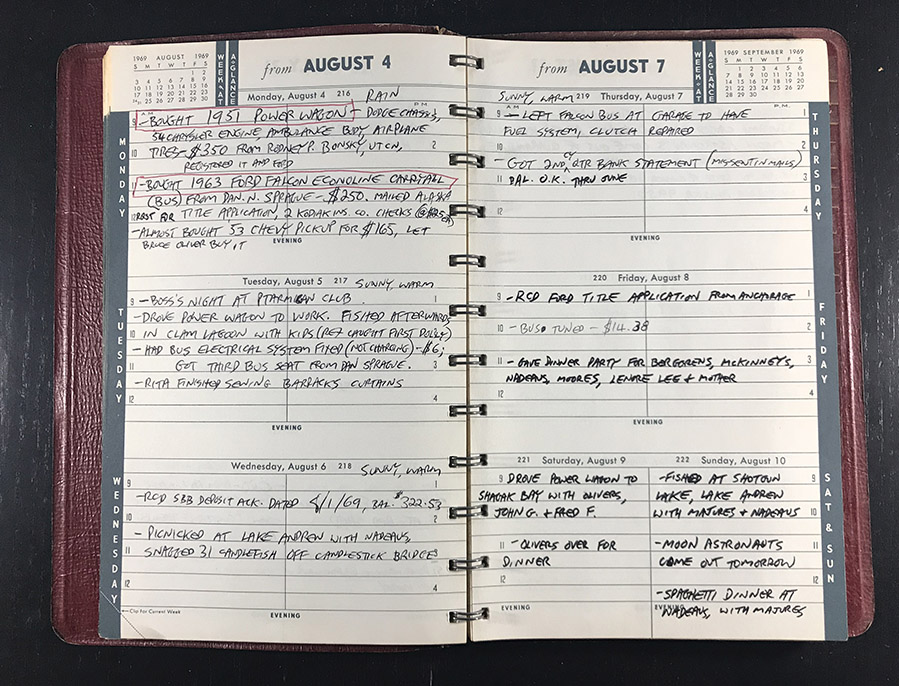 1969 AUGUST 1969
S M T W T F S
1 2
3 4 5 6 7 8 9
10 11 12 13 14 15 16
17 18 19 20 21 22 23
24/31 25 26 27 28 29 30
WEEK-AT
A-GLANCE
from AUGUST 4
Monday, August 4 216 RAIN
MONDAY
A.M. P.M.
9 -BOUGHT 1951 POWER WAGON - DODGE CHASSIS,
54 CHRYSLER ENGINE AMBULANCE BODY AIRPLANE
10 TIRES - $350 FROM RODNEY P. BONSKY, UTCN, 2
REGISTERED IT AND FORD
11 -BOUGHT 1963 FORD FALCON ECONOLINE CARRYALL
(BUS) FROM DAN. N. SPRAGUE - $250. MAILED ALASKA
12 FOR TITLE APPLICATION, 2 KODAK INS. CO. CHECKS
-ALMOST BOUGHT 53 CHEVY PICKUP FOR $165, LET
BRUCE OLIVER BUY IT
EVENING
Tuesday, August 5 217 SUNNY, WARM
TUESDAY
9 -BOSS'S NIGHT AT PTARMIGAN CLUB. 1
-DROVE POWER WAGON TO WORK. FISHED AFTERWARDS
10 IN CLAM LAGOON WITH KIDS (REZ CAUGHT FIRST DOLLY) 2
-HAD BUS ELECTRICAL SYSTEM FIXED (NOT CHARGING) - $6;
11 GOT THIRD BUS SEAT FROM DAN SPRAGUE. 3
-RITA FINISHED SEWING BARRACKS CURTAINS
12 4
EVENING
Wednesday, August 6 218 SUNNY, WARM
WEDNESDAY
9 1
-RCD SBB DEPOSIT ACK. DATED 8/1/69, BAL. $322.53
10 2
- PICNICKED AT LAKE ANDREW WITH NADEAUS,
11 SNAGGED 31 CANDLEFISH OFF CANDLESTICK BRIDGE 3
12 4
EVENING
Clip For Current Week
from AUGUST 7
WEEK-AT
A-GLANCE
1969 SEPTEMBER 1969
S M T W T F S
1 2 3 4 5 6
7 8 9 10 11 12 13
14 15 16 17 18 19 20
21 22 23 24 25 26 27
28 29 30
SUNNY, WARM 219 Thursday, August 7
THURSDAY
A.M. P.M.
9 -LEFT FALCON BUS AT GARAGE TO HAVE
FUEL SYSTEM, CLUTCH REPAIRED
10 2
-GOT 2ND CY QTR BANK STATEMENT (MISSENT IN MAILS)
11 BAL. O.K. THRU JUNE 3
12 4
EVENING
220 Friday, August 8
FRIDAY
9 -RCD FORD TITLE APPLICATION FROM ANCHORAGE 1
10 -BUS TUNED - $14.38 2
11 -GAVE DINNER PARTY FOR BORGORENS, MCKINNEYS, 3
NADEAUS, MOORES, LENORE LEE & MOTHER
12 4
EVENING
221 Saturday, August 9
9 DROVE POWER WAGON TO
SHAGAK BAY WITH OLIVERS,
10 JOHN G. & FRED F.
11 -OLIVERS OVER FOR
DINNER
12
EVENING
222 Sunday, August 10
SAT & SUN
-FISHED AT SHOTGUN 9
LAKE, LAKE ANDREW
WITH MAJURES & NADEAUS 10
-MOON ASTRONAUTS 11
COME OUT TOMORROW
12
-SPAGHETTI DINNER AT
EVENING
NADEAUS, WITH MAJURES